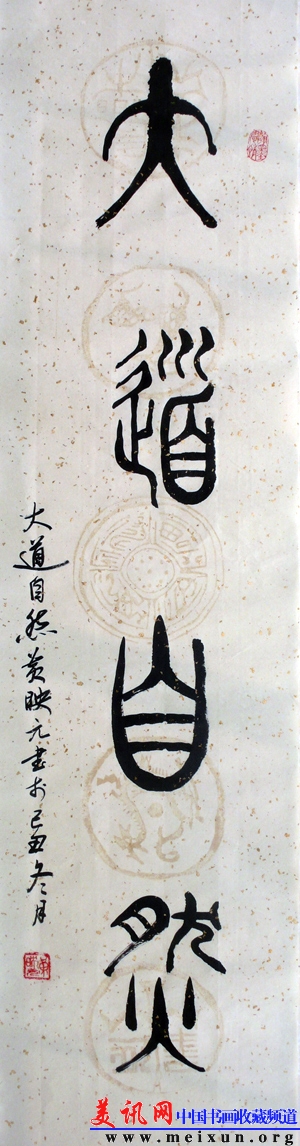 大道自然
大道自然黄映元书于己丑冬月
美讯网 中国书画收藏频道
www.meixun.org